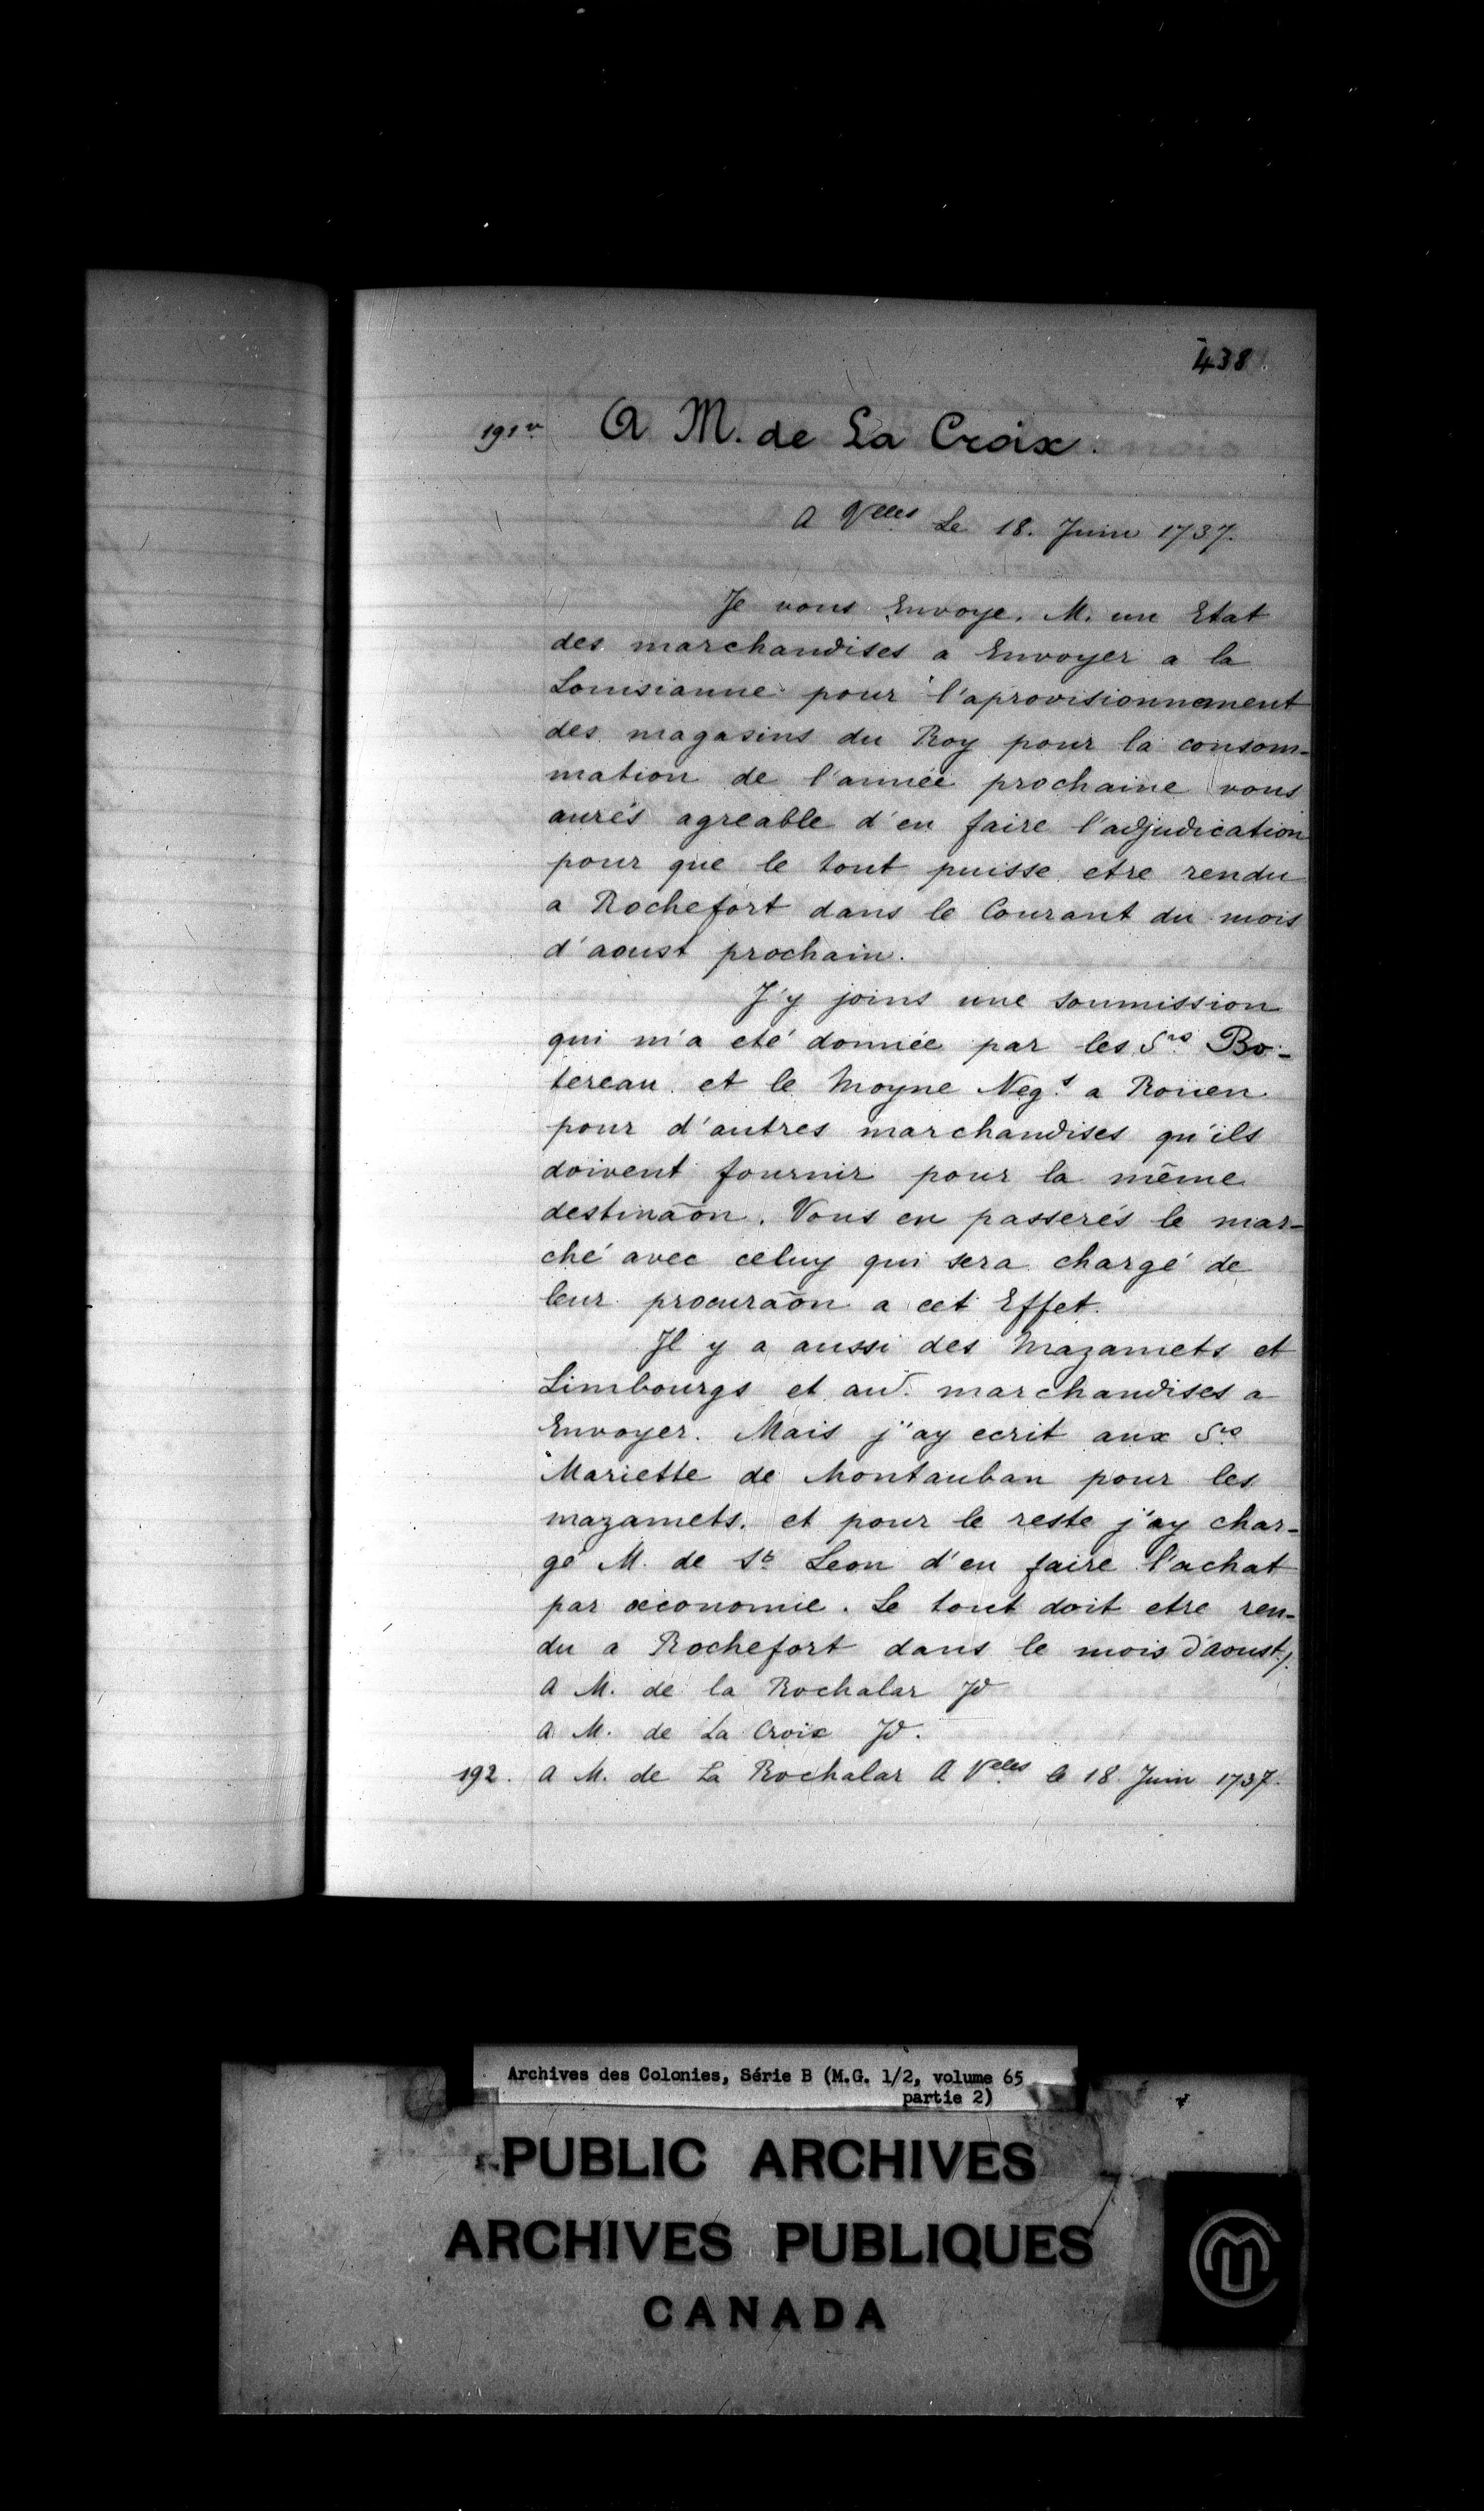 438
191v A M. de La Croix.
A Velles Le 18. Juin 1737.
Je vous Envoye. M. un Etat
des marchandises a Envoyer a la
Louisianne pour l'aprovisionnement
des magasins du Roy pour la consom-
mation de l'année prochaine vous
aurés agreable d'en faire l'adjudication
pour que le tout puisse etre rendu
a Rochefort dans le Courant du mois
d'aoust prochain.
J'y joins une soumission
qui m'a eté donnée par les Srs Bo-
tereau et le Moyne Negs a Roüen
pour d'autres marchandises qu'ils
doivent fournir pour la même
destinaõn. Vous en passerés le mar-
ché avec celuy qui sera chargé de
leur procuraõn a cet Effet.
Il y a aussi des Mazamets et
Limbourgs et aud. marchandises a
Envoyer. Mais j'ay ecrit aux Srs
Mariette de Montauban pour les
mazamets. et pour le reste j'ay char-
gé M. de St Leon d'en faire l'achat
par œconomie. Le tout doit etre ren-
du a Rochefort dans le mois d'aoust/.
A M. de la Rochalar Id
A M. de La Croix Id.
192. A M. de La Rochalar A Velles le 18 Juin 1737.
Archives des Colonies, Série B (M.G. 1/2, volume 65
partie 2)
PUBLIC ARCHIVES
ARCHIVES PUBLIQUES
CANADA